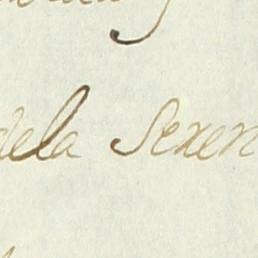 dela Seren